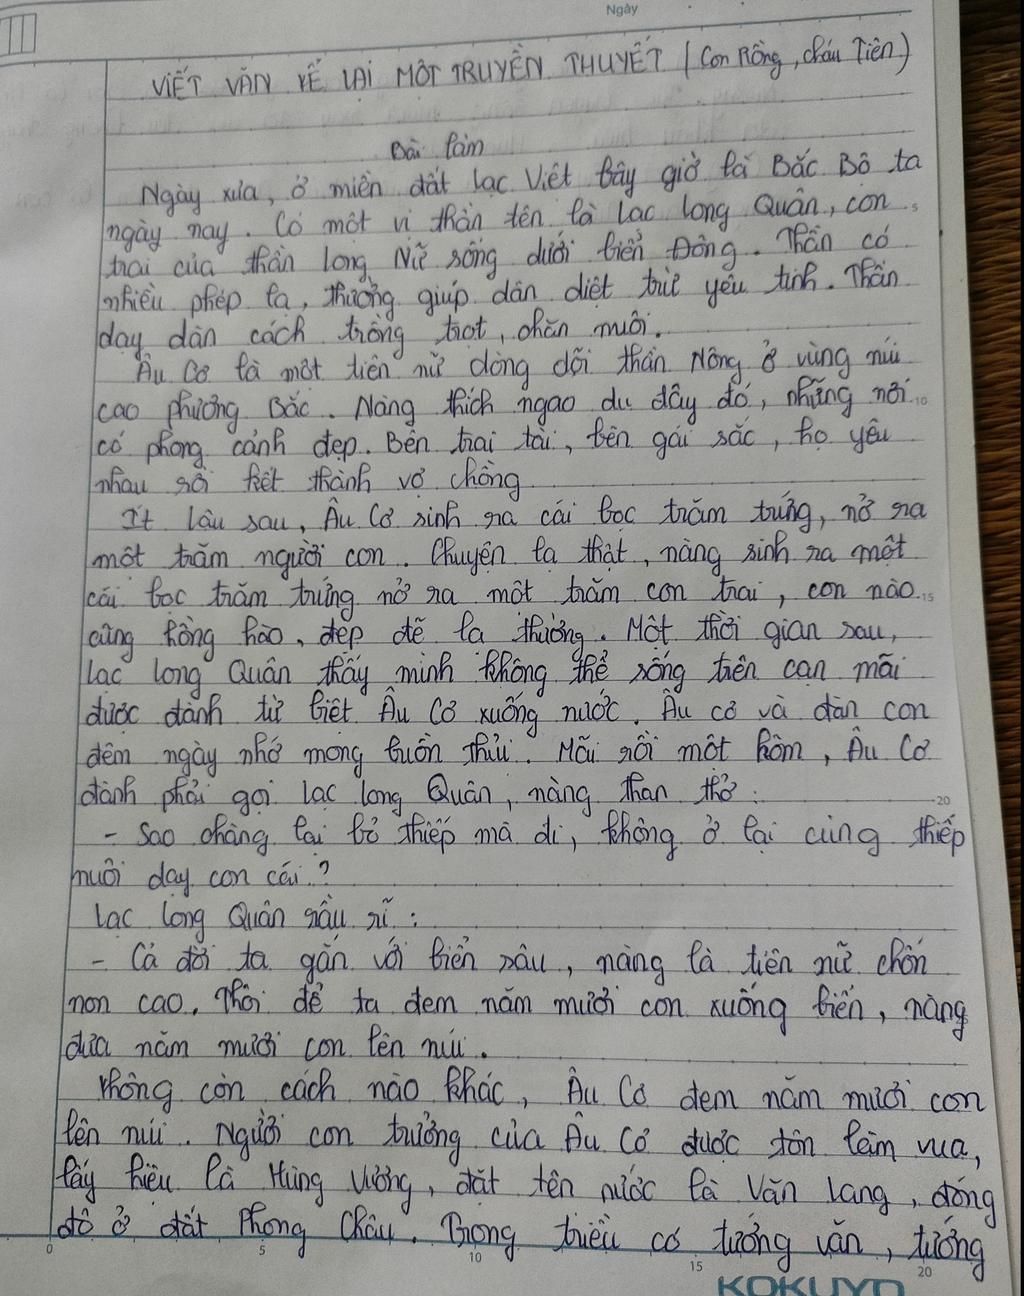 Ngày
VIẾT VĂN KỂ LẠI MỘT TRUYỀN THUYẾT (Con Rồng, cháu Tiên)
Bài làm
Ngày xưa, ở miền đất lạc Việt bây giờ là Bắc Bộ ta
ngày nay. Có một vị thần tên là Lạc Long Quân, con
trai của thần Long Nữ sống dưới biển Đông. Thần có
nhiều phép lạ, thường giúp dân diệt trừ yêu tinh. Thần
dạy dân cách trồng trọt, chăn nuôi.
Âu Cơ là một tiên nữ dòng dõi thần Nông ở vùng núi
cao phương Bắc. Nàng thích ngao du đây đó, những nơi 10
có phong cảnh đẹp. Bên trai tài, bên gái sắc, họ yêu
nhau rồi kết thành vợ chồng
Ít lâu sau, Âu Cơ sinh ra cái bọc trăm trứng, nở ra
một trăm người con. Chuyện lạ thật, nàng sinh ra một
cái bọc trăm trứng nở ra một trăm con trai, con nào 15
cũng hồng hào, đẹp đẽ lạ thường. Một thời gian sau,
Lạc Long Quân thấy mình không thể sống trên cạn mãi
được đành từ biệt Âu Cơ xuống nước. Âu cơ và đàn con
đêm ngày nhớ mong buồn thủi. Mãi rồi một hôm, Âu Cơ
đành phải gọi Lạc Long Quân, nàng than thở: 20
- Sao chàng lại bỏ thiếp mà đi, không ở lại cùng thiếp
nuôi dạy con cái?
Lạc Long Quân rầu rĩ:
- Cả đời ta gắn với biển sâu, nàng là tiên nữ chốn
non cao. Thôi để ta đem năm mươi con xuống biển, nàng
đưa năm mươi con lên núi.
Không còn cách nào khác, Âu Cơ đem năm mươi con
lên núi. Người con trưởng của Âu Cơ được tôn làm vua,
lấy hiệu là Hùng Vương, đặt tên nước là Văn Lang, đóng
đô ở đất Phong Châu. Trong triều có tướng văn, tướng
0 5 10 15 20
KOKUYO